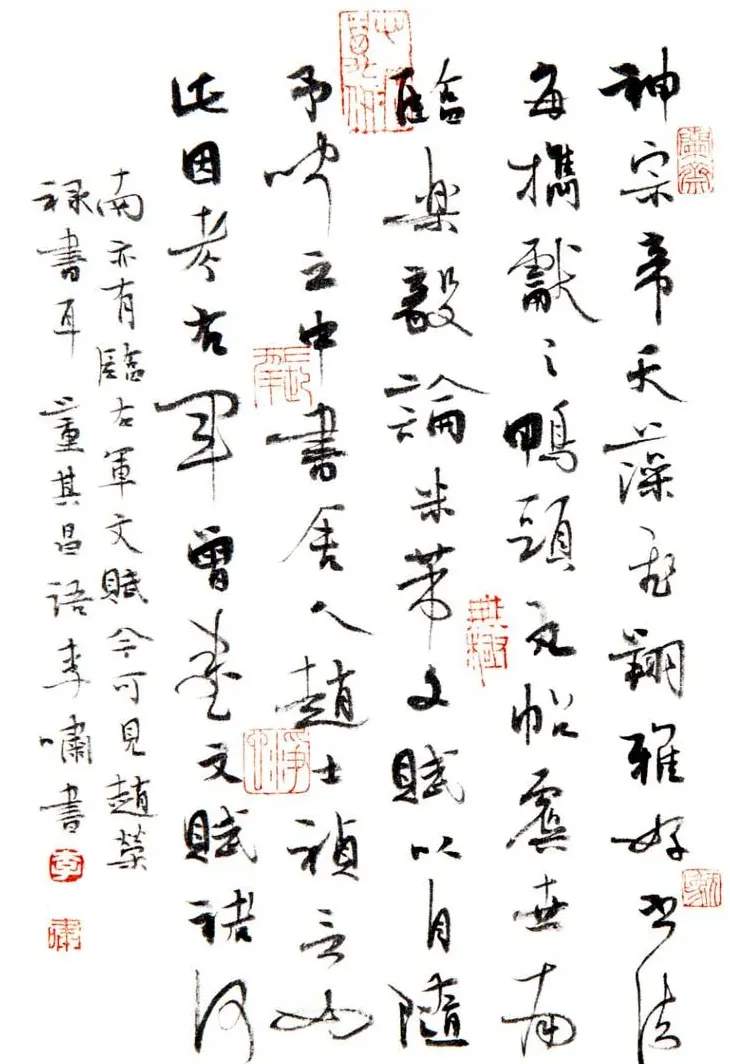 神宗帝天藻飛翔雅好書法
每攜獻之鴨頭丸帖虞世南
臨樂毅論米芾文賦以自隨
予聞之中書舍人趙士禎言如
此因考右軍曾書文賦褚河
南亦有臨右軍文賦今可見趙榮
祿書耳 董其昌語 李嘯書